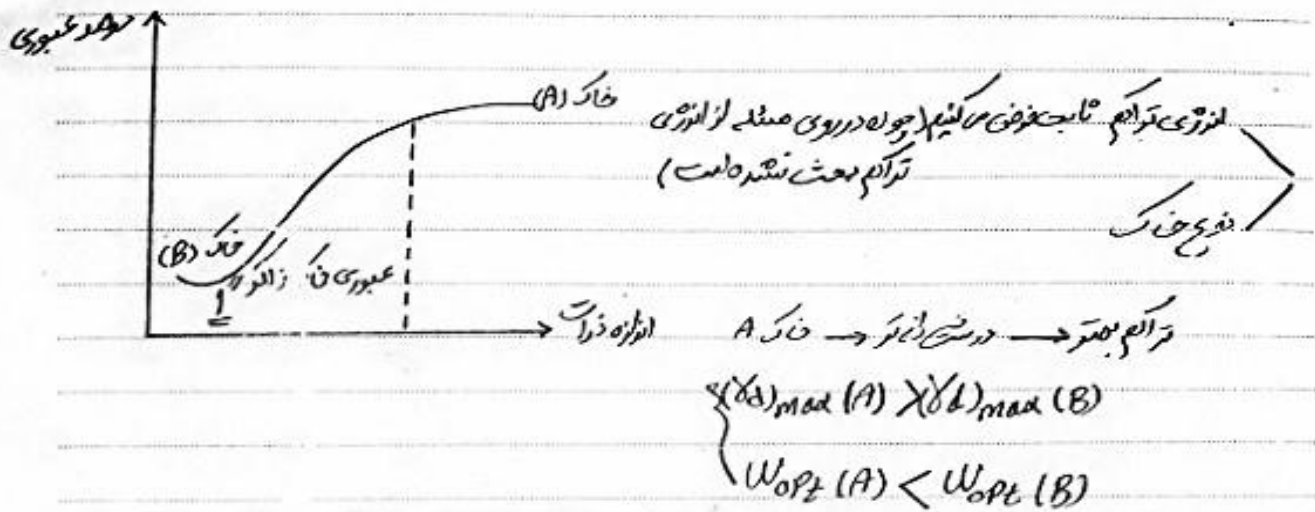 درصد عبوری
خاک (A)
خاک (B)
عبوری
اندازه ذرات
انرژی تراکم ثابت فرض می کنیم (چون در روی مسئله از انرژی
تراکم بحث نشده است)
نوع خاک
تراکم بهتر → درشت دانه تر → خاک A
(γd)max (A) > (γd)max (B)
Wopt (A) < Wopt (B)